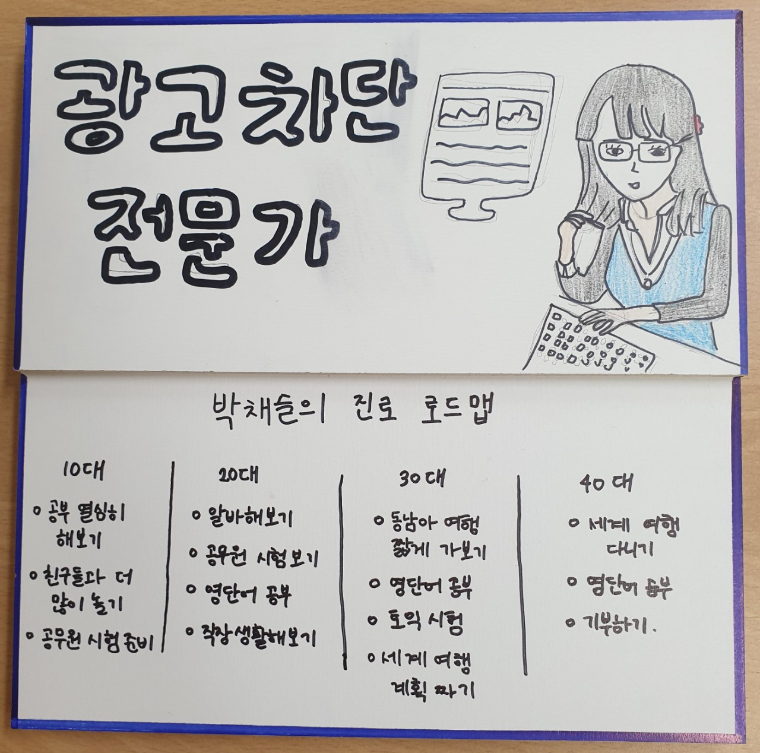 광고차단
전문가
박채슬의 진로 로드맵
10대
공부 열심히
해보기
친구들과 더
많이 놀기
공무원 시험 준비
20대
알바해보기
공무원 시험보기
영단어 공부
직장생활해보기
30대
동남아 여행
짧게 가보기
영단어 공부
토익 시험
세계 여행
계획 짜기
40대
세계 여행
다니기
영단어 공부
기부하기.